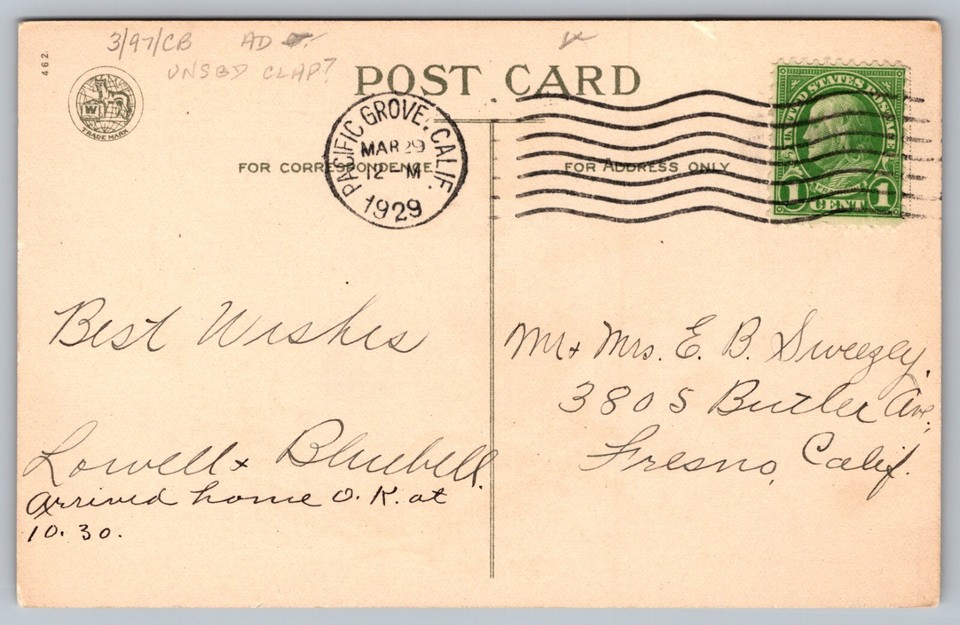 462
3/97/CB AD
UNSBD CLAP?
POST CARD
W
TRADE MARK
PACIFIC GROVE, CALIF.
MAR 29
12 - M
1929
UNITED STATES POSTAGE
1 CENT 1
FOR CORRESPONDENCE
FOR ADDRESS ONLY
Best Wishes
Lowell + Bluebell.
Arrived home O.K. at
10.30.
Mr + Mrs. E. B. Sweezey.
3805 Butler Ave,
Fresno, Calif.